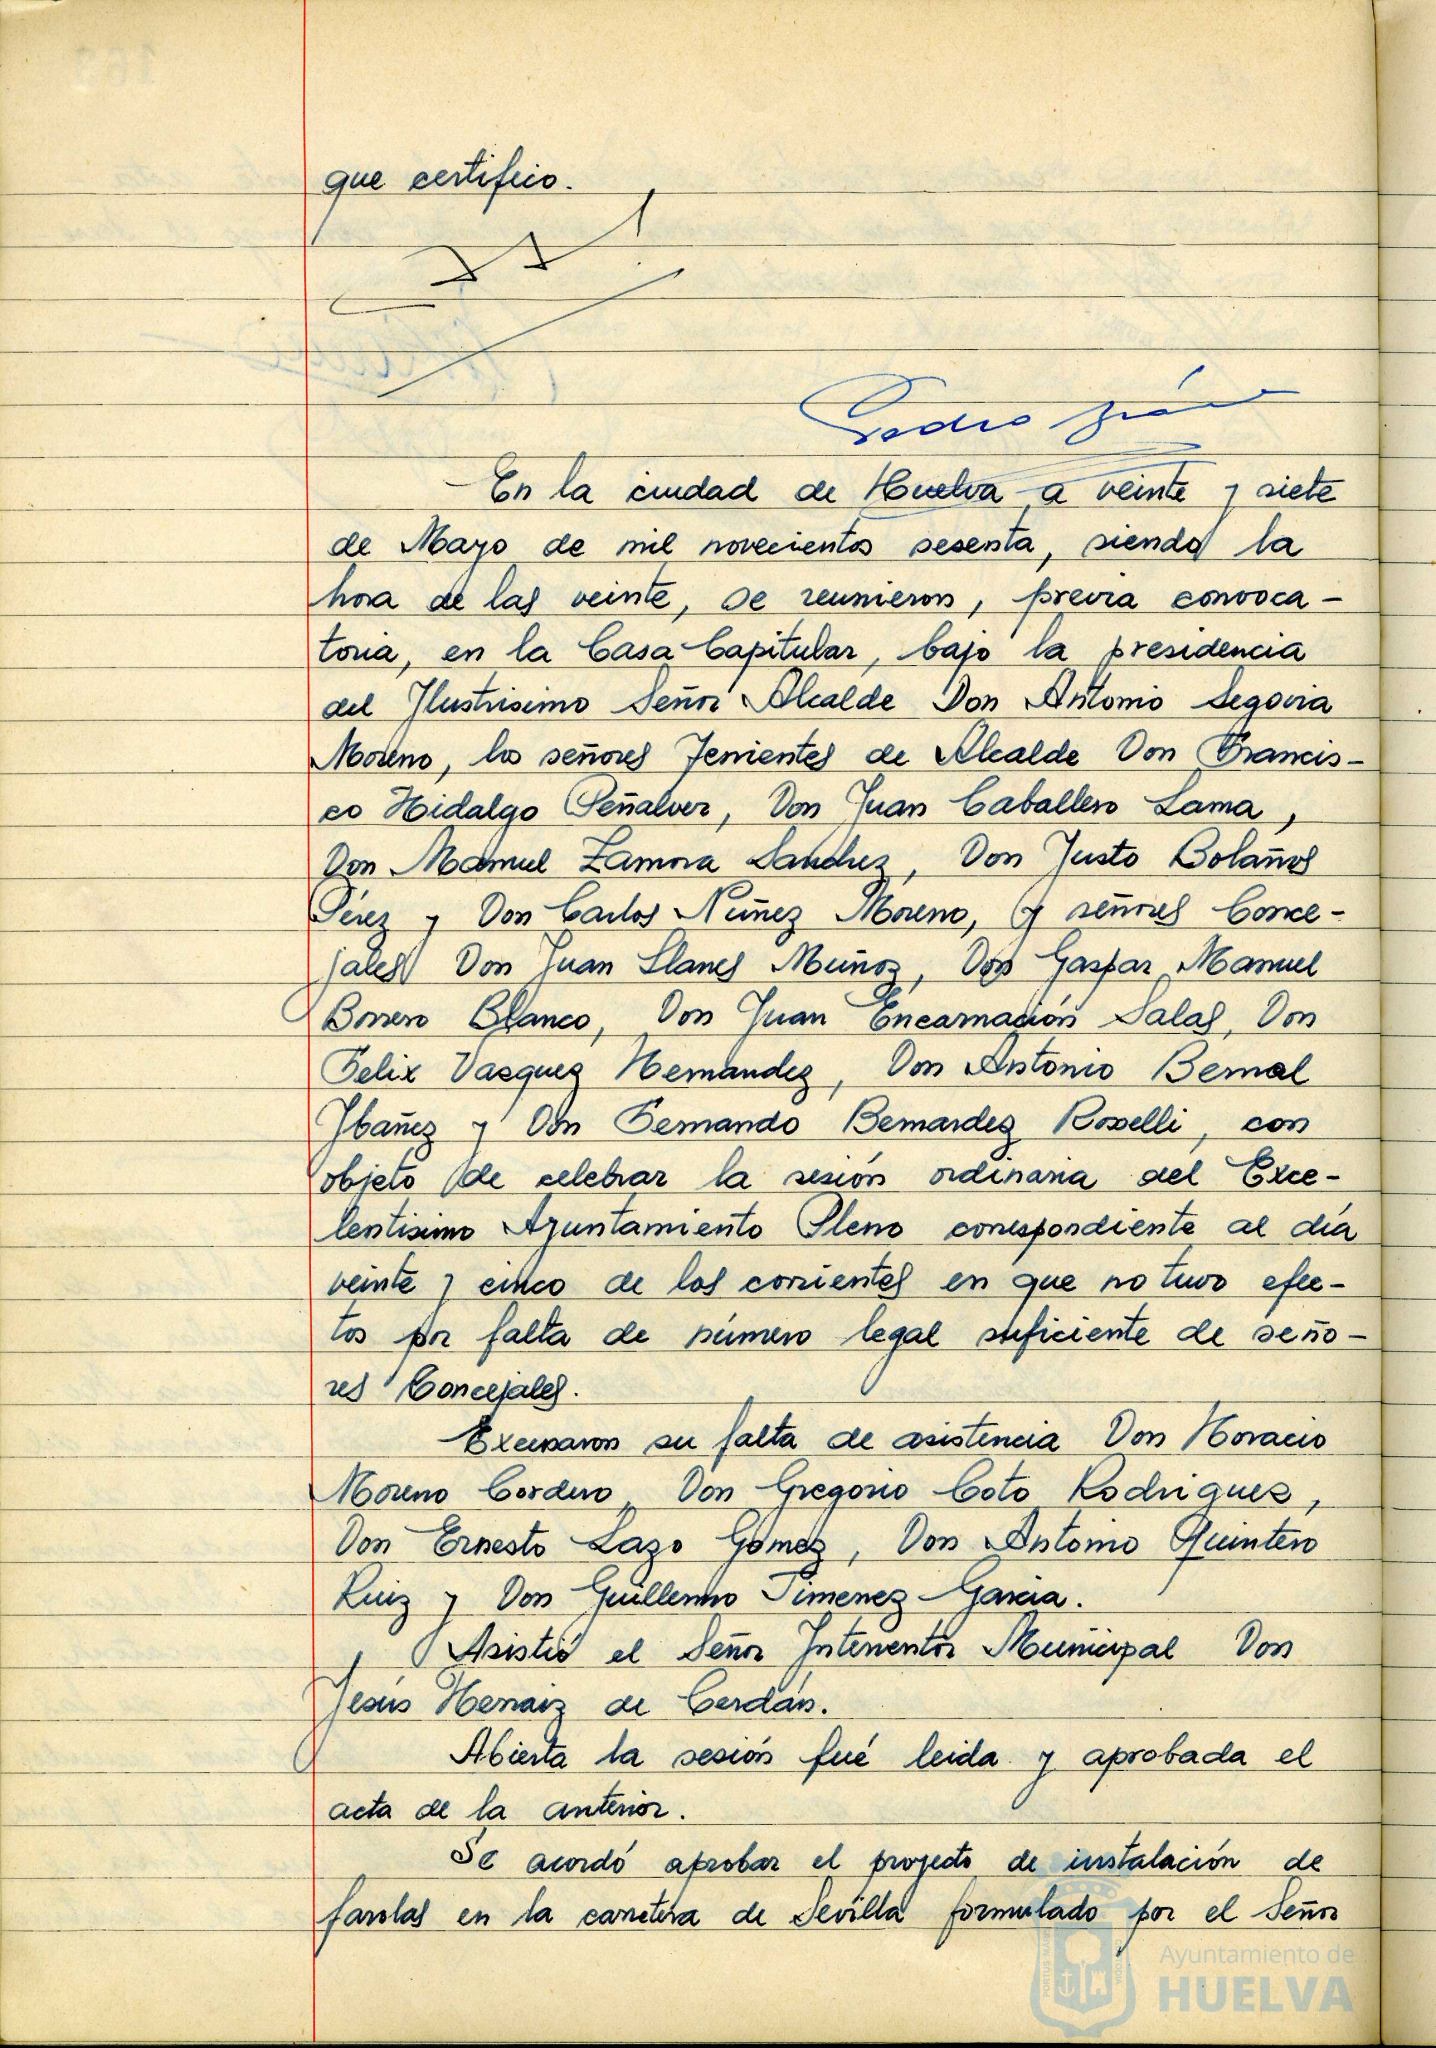 que certifico.
Pedro
En la ciudad de Huelva a veinte y siete
de Mayo de mil novecientos sesenta, siendo la
hora de las veinte, se reunieron, previa convoca-
toria, en la Casa Capitular, bajo la presidencia
del Ilustrisimo Señor Alcalde Don Antonio Segovia
Moreno, los señores Tenientes de Alcalde Don Francis-
co Hidalgo Peñalver, Don Juan Caballero Lama,
Don Manuel Zamora Sanchez, Don Justo Bolaños
Pérez y Don Carlos Núñez Moreno, y señores Conce-
jales Don Juan Llanes Muñoz, Don Gaspar Manuel
Borrero Blanco, Don Juan Encarnación Salas, Don
Felix Vazquez Hernandez, Don Antonio Bernal
Ibañez y Don Fernando Bernardez Roselli, con
objeto de celebrar la sesión ordinaria del Exce-
lentisimo Ayuntamiento Pleno correspondiente al día
veinte y cinco de los corrientes en que no tuvo efec-
tos por falta de número legal suficiente de seño-
res Concejales.
Excusaron su falta de asistencia Don Horacio
Moreno Cordero, Don Gregorio Coto Rodriguez,
Don Ernesto Lazo Gomez, Don Antonio Quintero
Ruiz y Don Guillermo Jimenez Garcia.
Asistió el Señor Interventor Municipal Don
Jesús Hernaiz de Cerdán.
Abierta la sesión fué leida y aprobada el
acta de la anterior.
Se acordó aprobar el proyecto de instalación de
farolas en la carretera de Sevilla formulado por el Señor
Ayuntamiento de
HUELVA